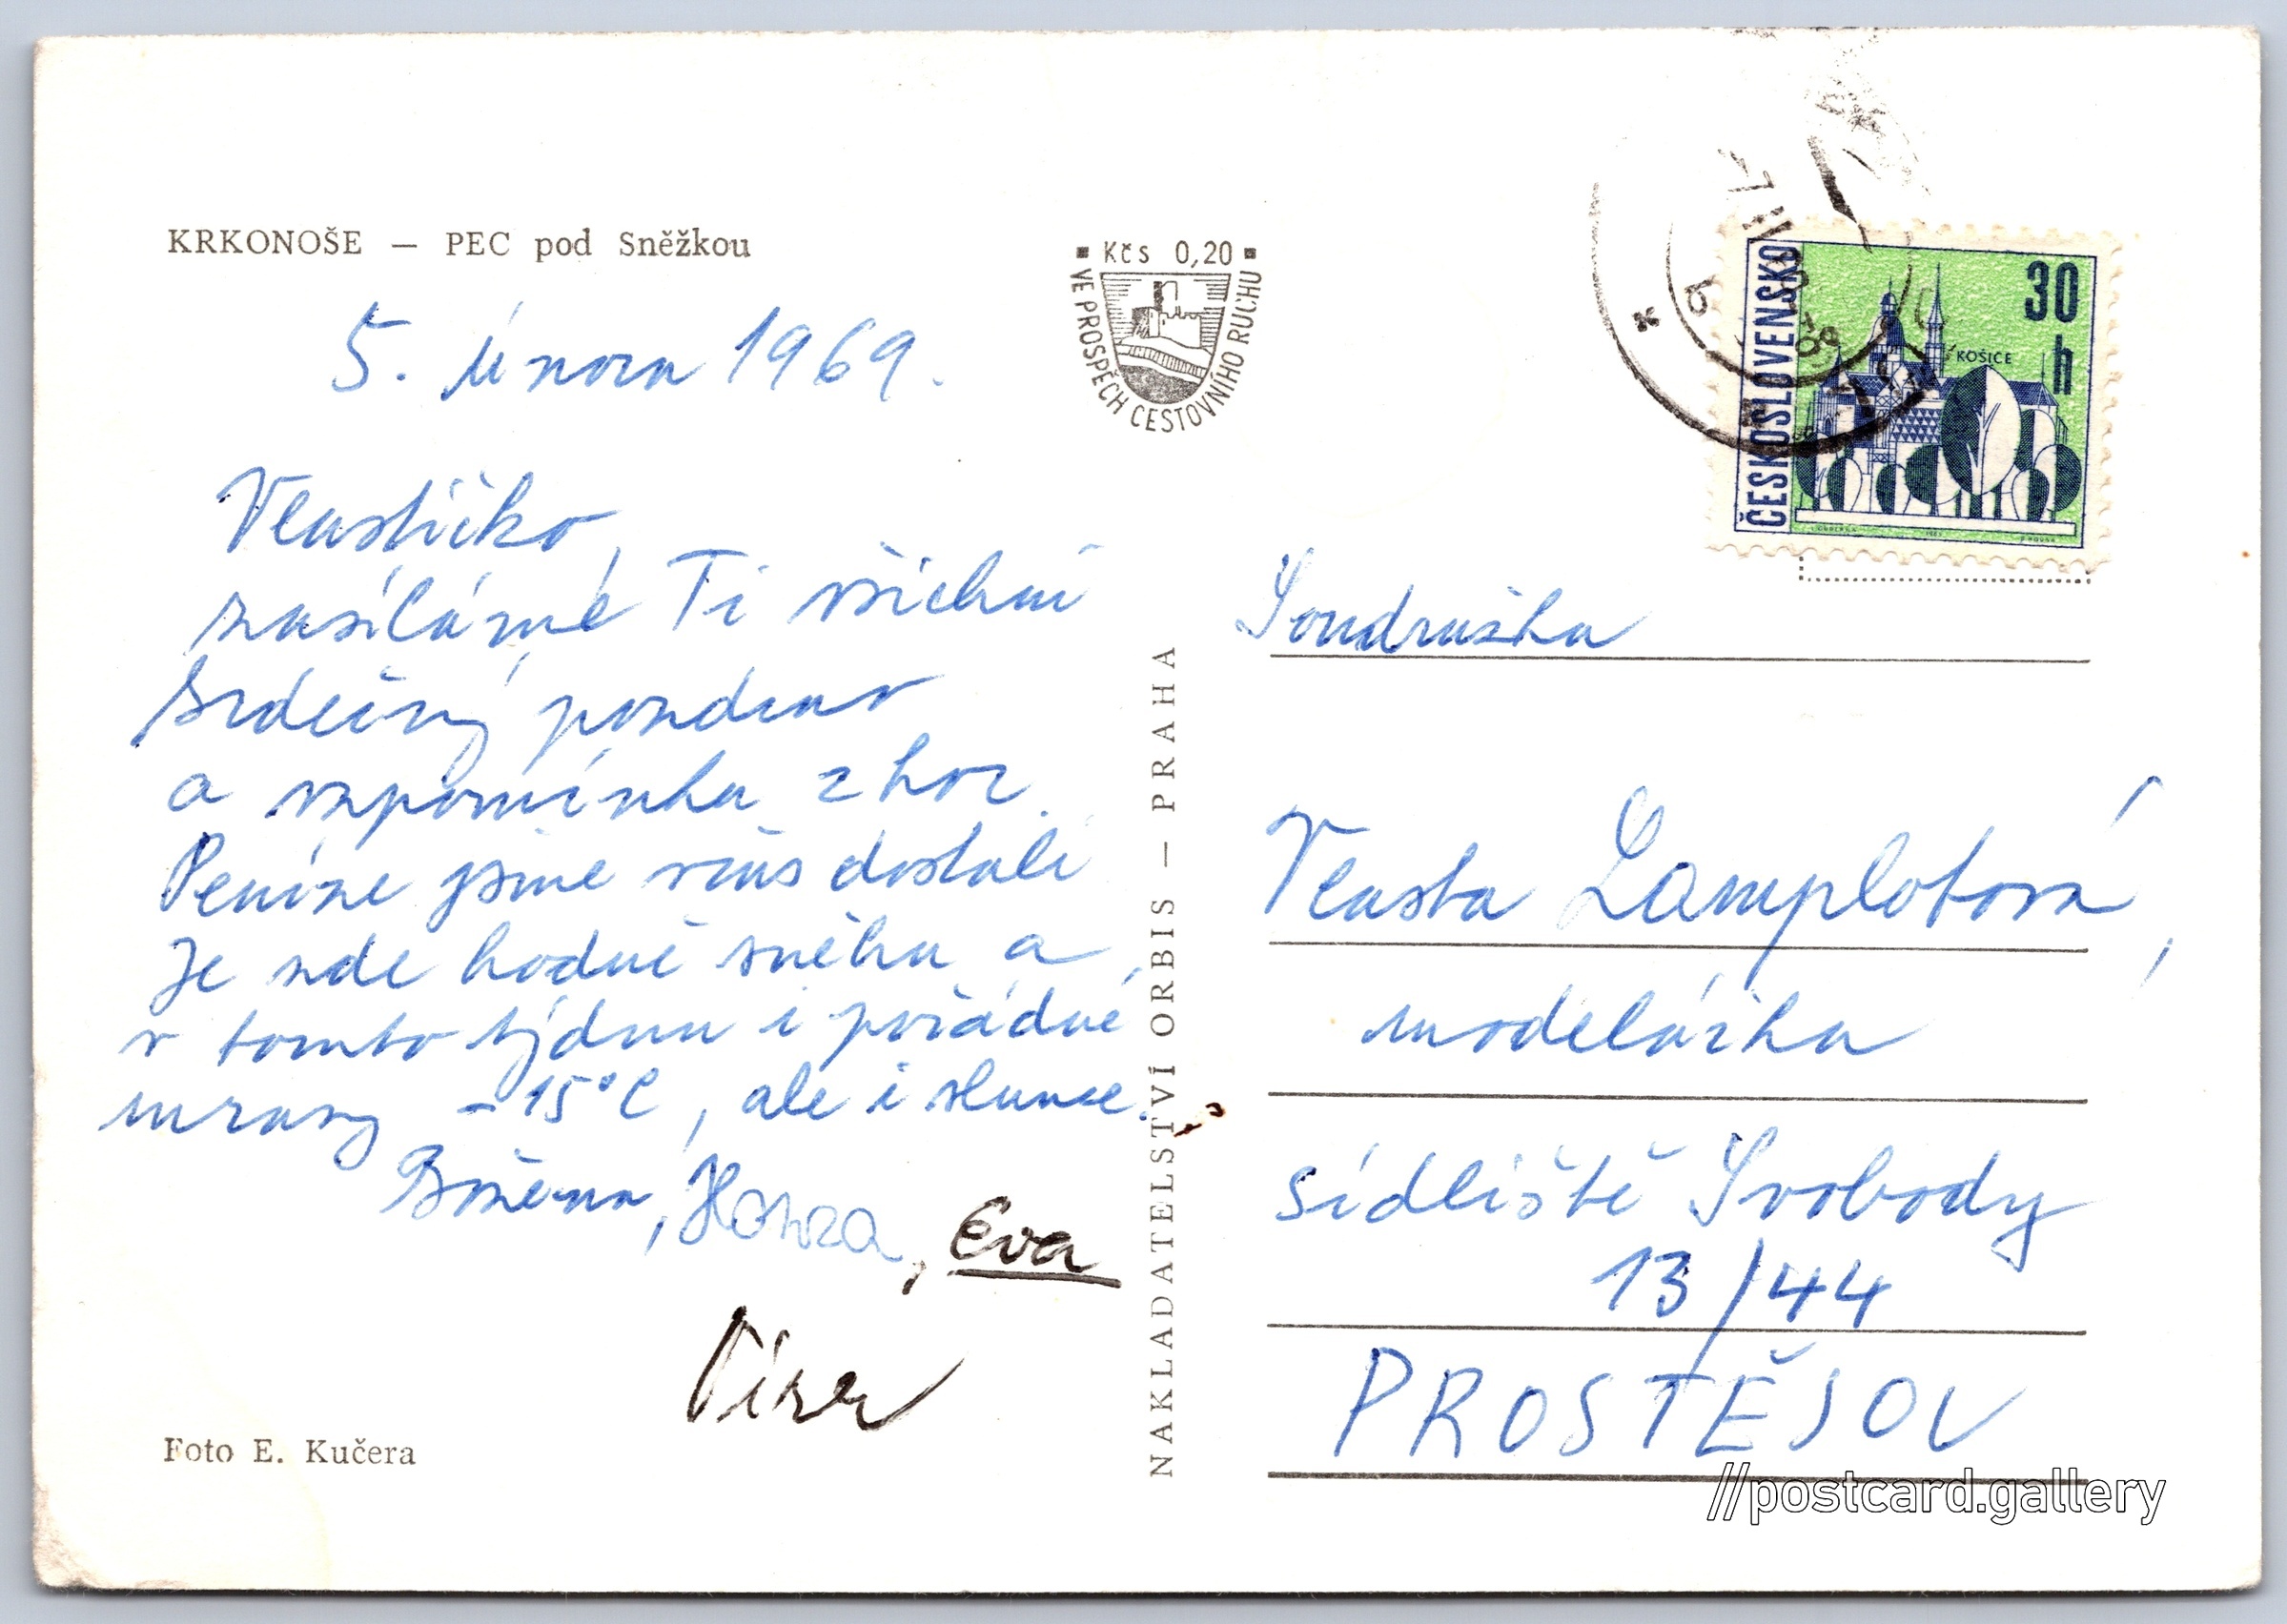 KRKONOŠE — PEC pod Sněžkou
5. února 1969.
Vlastičko,
zasíláme Ti všichni
srdečný pozdrav
a vzpomínku z hor.
Peníze jsme včas dostali
Je zde hodně sněhu a
v tomto týdnu i pořádné
mrazy -15°C, ale i slunce.
Božena, Honza, Eva
Foto E. Kučera
Kčs 0,20
VE PROSPĚCH CESTOVNÍHO RUCHU
NAKLADATELSTVÍ ORBIS — PRAHA
ČESKOSLOVENSKO
30 h
KOŠICE
Soudružka
Vlasta Lamplotová,
modelářka
sídliště Svobody
13/44
PROSTĚJOV
//postcard.gallery